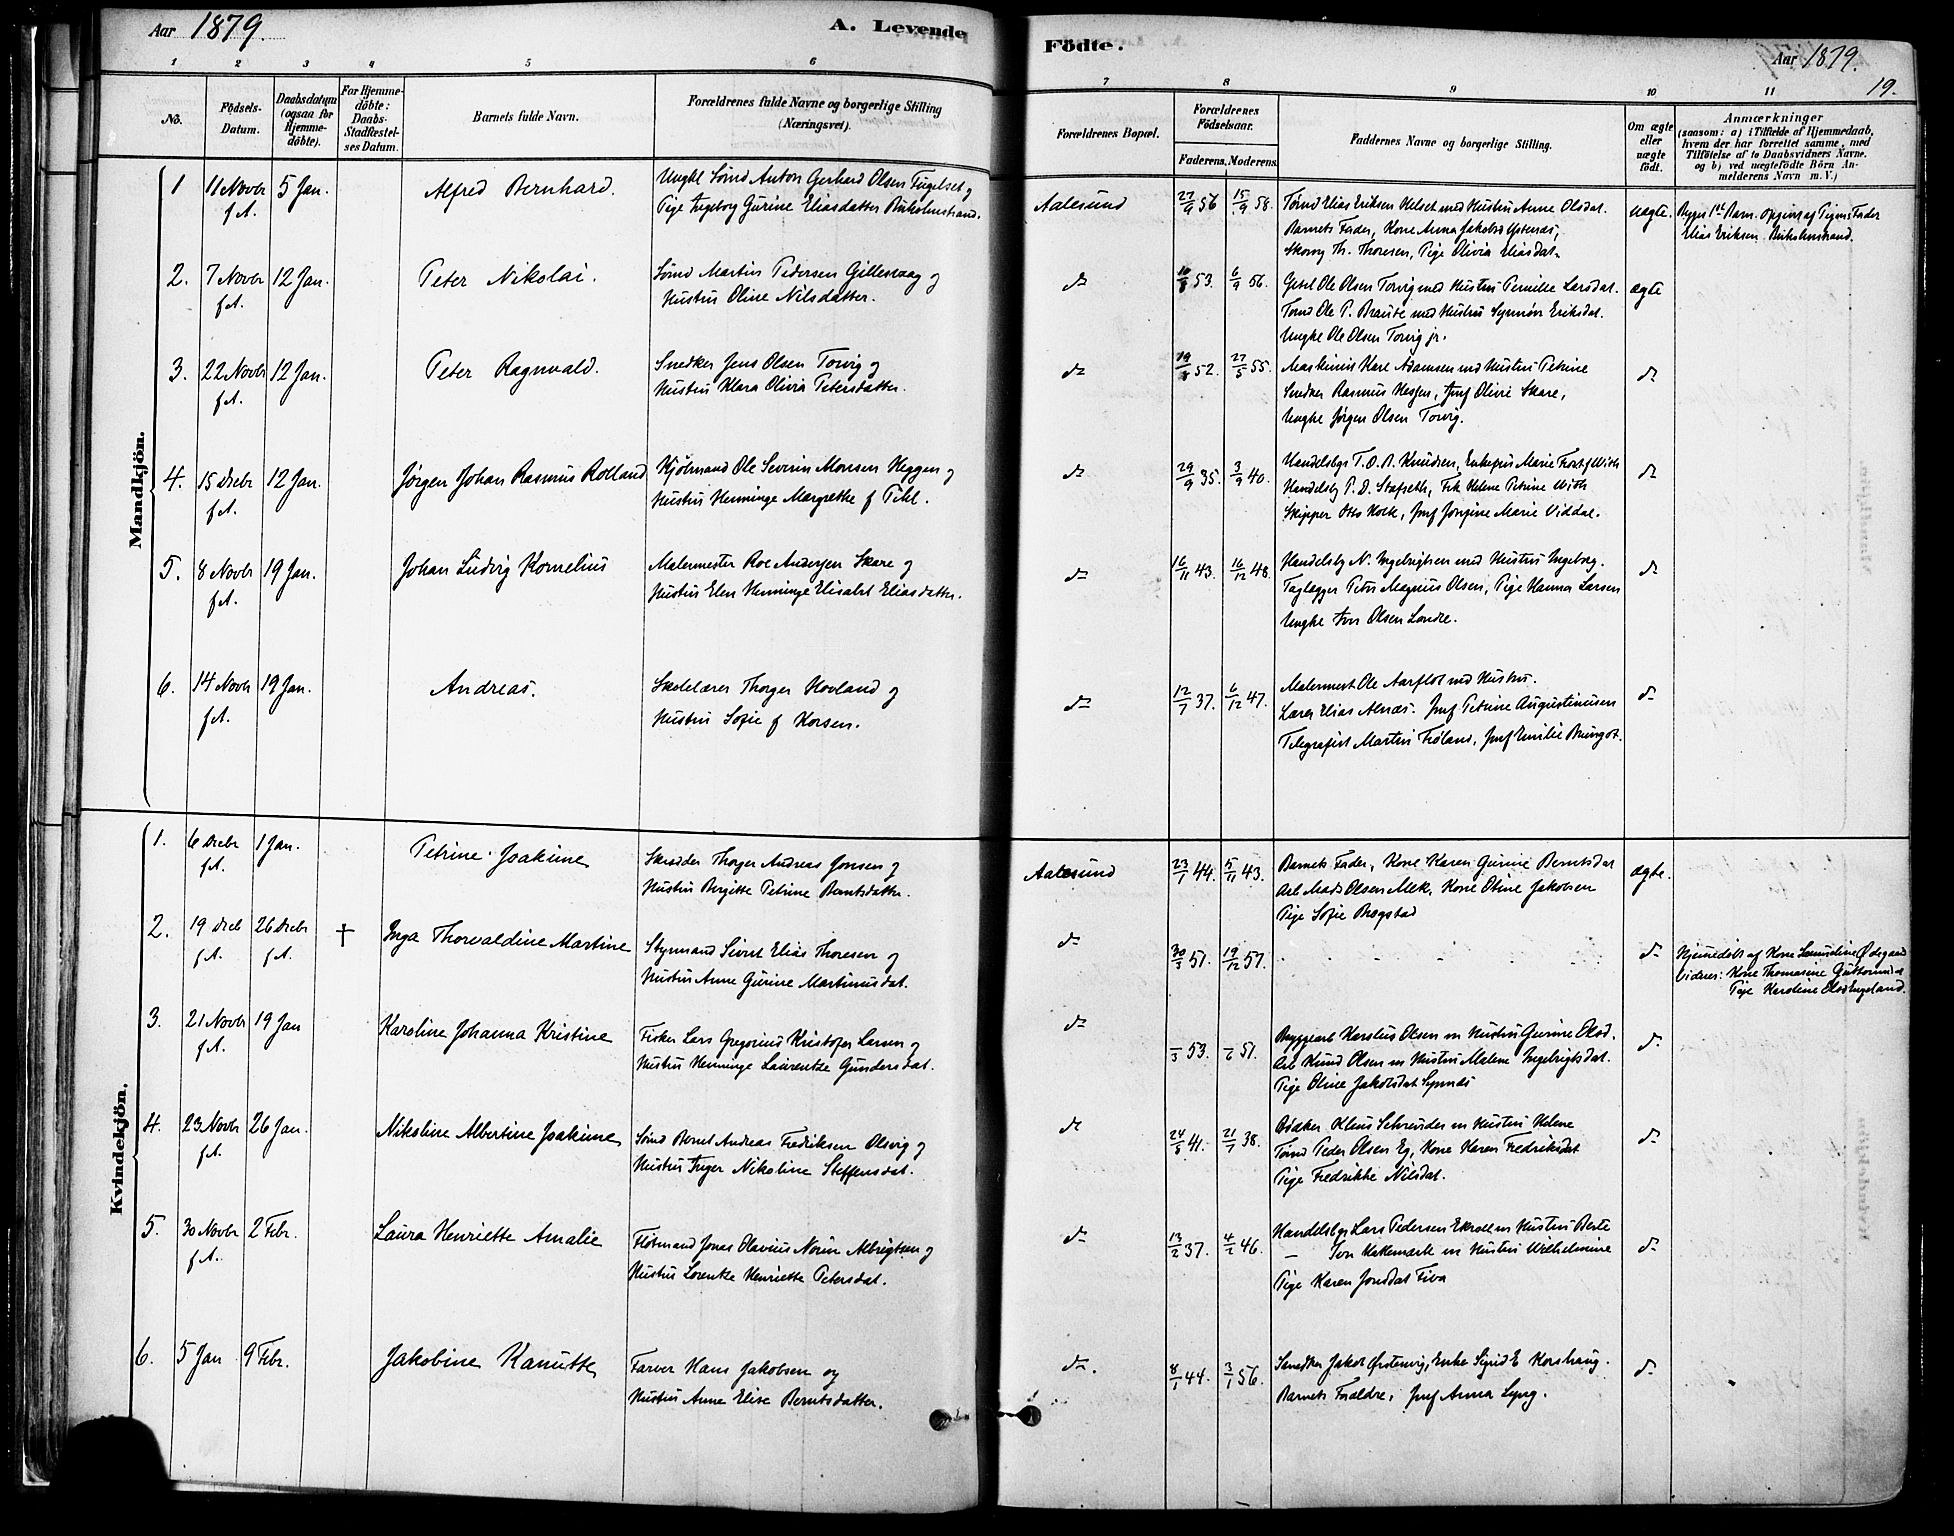 Aar 1879.
A. Levende
Födte.
Aar 1879.
19.
1 2 3 4 5 6 7 8 9 10 11
No.
Födsels-Datum.
Daabsdatum (ogsaa for Hjemme-döbte).
For Hjemme-döbte: Daabs-Stadfæstel-ses Datum.
Barnets fulde Navn.
Forældrenes fulde Navne og borgerlige Stilling (Næringsvei).
Forældrenes Bopæl.
Forældrenes Födselsaar.
Faderens. Moderens.
Faddernes Navne og borgerlige Stilling.
Om ægte eller uægte födt.
Anmærkninger
(saasom: a) i Tilfælde af Hjemmedaab,
hvem der har forrettet samme, med
Tilföielse af to Daabsvidners Navne.
og b) ved uægtefödte Börn An-
melderens Navn m. V.)
Mandkjön.
1 11 Novbr f.A. 5 Jan. Alfred Bernhard. Ungkl Sömd Anton Gerhard Olsen Fugelset og
Pige Ingeborg Gurine Eliasdatter Birkholmstrand.
Aalesund 27/9 56 15/9 58. Tömd Elias Eriksen Helset med Hustru Anne Olsdat.
Barnets Fader, Kone Anna Jakobsd Ystenæs,
Skomg Th. Thoresen, Pige Olivia Eliasdat.
uægte. Begges 1ste Barn. Opgivn af Pigens Fader
Elias Eriksen Birkholmstrand.
2. 7 Novbr f.A. 12 Jan. Peter Nikolai. Sömd Martin Pedersen Gillesvaag og
Hustru Oline Nilsdatter.
do 10/8 53. 6/9 56. Gesel Ole Olsen Torvig med Hustru Pernille Larsdat.
Tömd Ole P. Braute med Hustru Synnöv Eriksdat.
Ungkl Ole Olsen Torvig jr.
ægte
3. 22 Novbr f.A. 12 Jan. Peter Ragnvald. Snedker Jens Olsen Torvig og
Hustru Klara Olivia Petersdatter.
do 19/8 52. 27/5 55. Maskinist Kare Adamsen med Hustru Petrine
Snedker Rasmus Hessen, Jmf Olivie Skare,
Ungkl Jörgen Olsen Torvig.
do
4. 15 Decbr f.A. 12 Jan. Jörgen Johan Rasmus Rolland Kjölmand Ole Severin Monsen Heggen og
Hustru Henninge Margrethe f Fihl.
do 29/9 35. 3/9 40. Handelsbg T. O. A. Knudsen, Enkefru Marie Trost f With
Handelsbg P. D. Stafseth, Frk Helene Petrine With
Skipper Otto Holk, Jmf Jörgine Marie Viddal.
do
5. 8 Novbr f.A. 19 Jan. Johan Ludvig Kornelius Malermester Roe Andersen Skare og
Hustru Elen Henninge Elisabet Eliasdatter.
do 16/11 43. 16/12 48. Handelsbg N. Ingebrigtsen med Hustru Ingeborg.
Taglægger Peter Magnus Olsen, Pige Hanna Larsen
Ungkl Iver Olsen Londre.
do
6. 14 Novbr f.A. 19 Jan. Andreas. Skolelærer Thorger Hovland og
Hustru Sofie f Korsen.
do 12/7 37. 6/12 47. Malermest Ole Aarflot med Hustru.
Lærer Elias Alnæs. Jmf Petrine Augustinusen
Telegrafist Martin Fröland, Jmf Emilie Brungot.
do
Kvindekjön.
1. 6 Decbr f.A. 1 Jan. Petrine Joakime Skrædder Thorger Andreas Jonsen og
Hustru Birgitte Petrine Berntsdatter.
Aalesund 23/1 44. 5/11 43. Barnets Fader, Kone Karen Gurine Berntsdat
Arb Mads Olsen Mek, Kone Oline Jakobsen
Pige Sofie Brogstad
ægte.
2. 19 Decb f.A. 26 Decbr f.A. † Inga Thorvaldine Martine Styrmand Sivert Elias Thoresen og
Hustru Anne Gurine Martinusdat.
do 30/3 51. 19/12 57. do Hjemmedöbt af Kone Samueline Ödegaard
Vidner: Kone Thomasine Guttormsd
Pige Karoline Olsd Engeland.
3. 21 Novbr f.A. 19 Jan Karoline Johanna Kristine Fisker Lars Gregorius Kristofer Larsen og
Hustru Henninge Laurentze Gundersdat.
do /3 53. /6 51. Byggearb Karolus Olsen m Hustru Gurine Olsd.
Arb Knud Olsen m Hustru Malene Ingebrigtsdat.
Pige Oline Jakobsdat Synnæs
do
4. 23 Novbr f.A. 26 Jan. Nikoline Albertine Joakime Sömd Bernt Andreas Fredriksen Olsvig og
Hustru Inger Nikoline Steffensdat.
do 24/8 41. 21/7 38. Bödker Klaus Schreuder m Hustru Helene
Tömd Peder Olsen Eg, Kone Karen Fredriksdat
Pige Fredrikke Nilsdat.
do
5. 30 Novbr f.A. 2 Febr. Laura Henriette Amalie Flötmand Jonas Olavius Norin Albrigtsen og
Hustru Lorentze Henriette Petersdat.
do 13/2 37. 4/2 46. Handelsbg Lars Pedersen Ekroll m Hustru Berte
— Iver Hakkemark m Hustru Wilhelmine
Pige Karen Jonsdat Fiva
do
6. 5 Jan 9 Febr. Jakobine Kanutte Farver Hans Jakobsen og
Hustru Anne Elise Berntsdatter.
do. 8/1 44. 3/1 56. Snedker Jakob Örstenvig, Enke Sigrid E Korshaug.
Barnets Forældre, Jmf Anna Lyng.
do